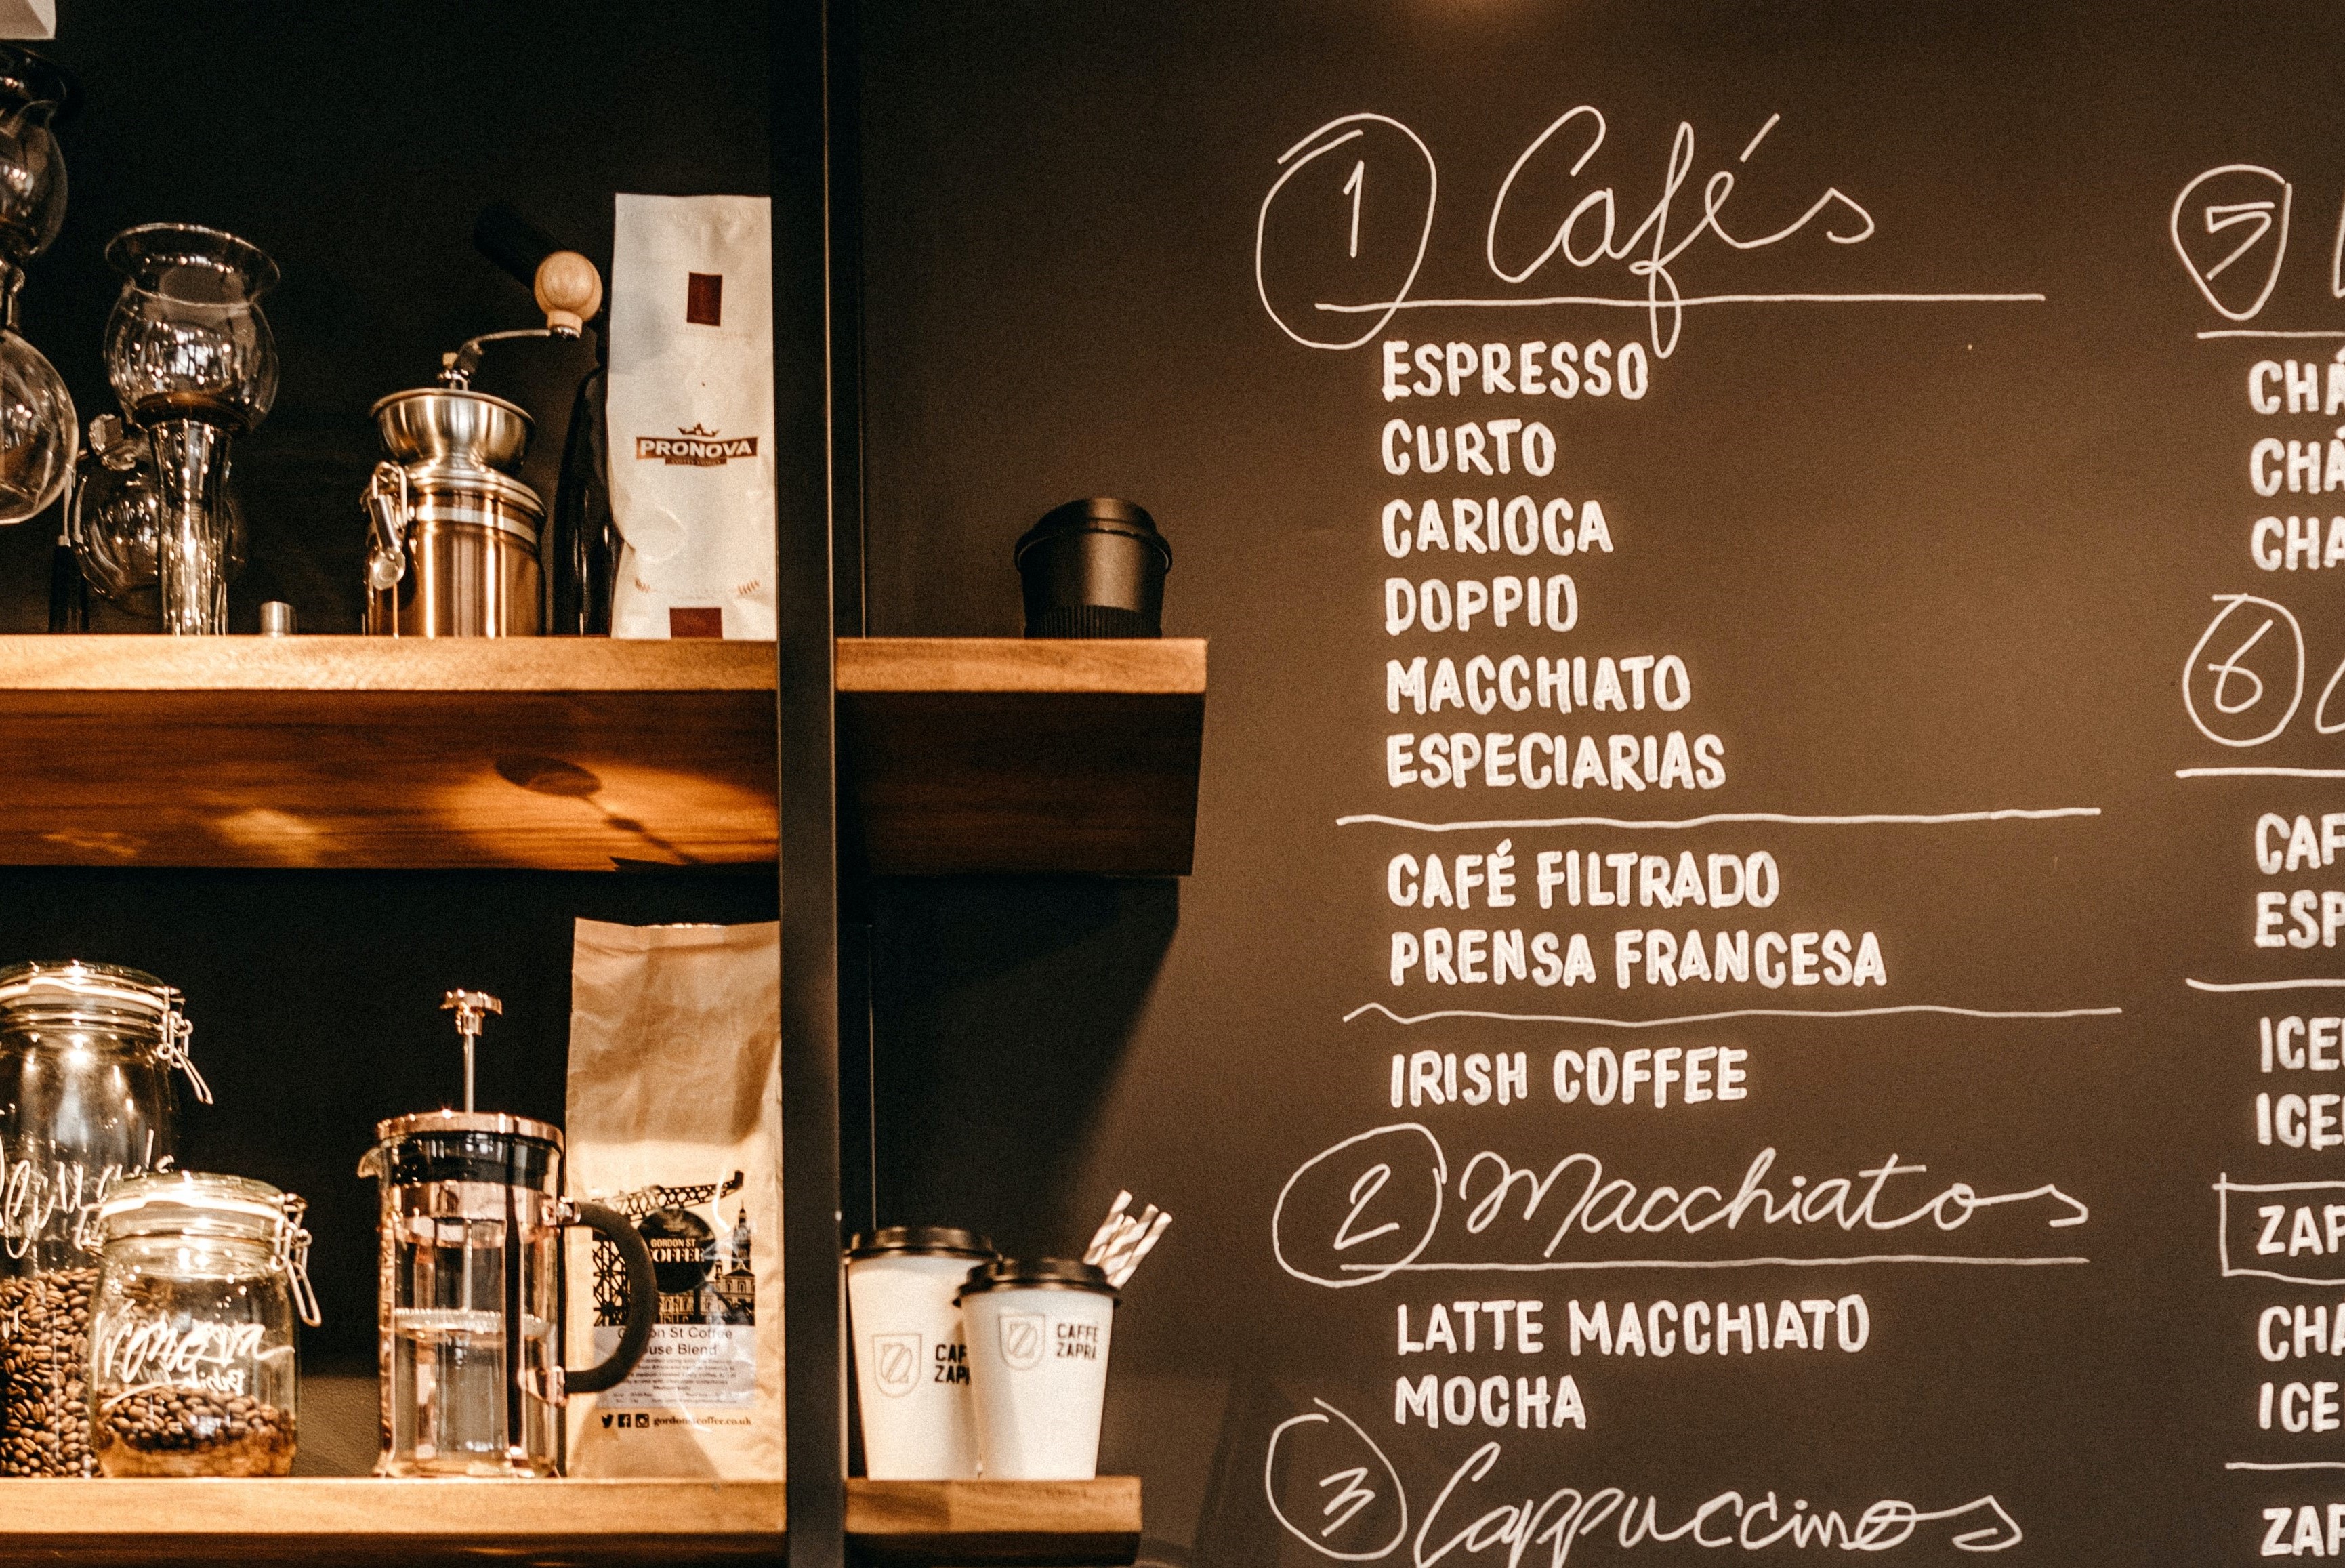 PRONOVA
GORDON ST
COFFEE
Gordon St Coffee
House Blend
gordonstcoffee.co.uk
CAFFÈ
ZAPRA
1 Cafés
ESPRESSO
CURTO
CARIOCA
DOPPIO
MACCHIATO
ESPECIARIAS
CAFÉ FILTRADO
PRENSA FRANCESA
IRISH COFFEE
2 Macchiatos
LATTE MACCHIATO
MOCHA
3 Cappuccinos
5
CHÁ
CHÁ
CHA
6
CAF
ESP
ICE
ICE
ZAP
CHA
ICE
ZAP